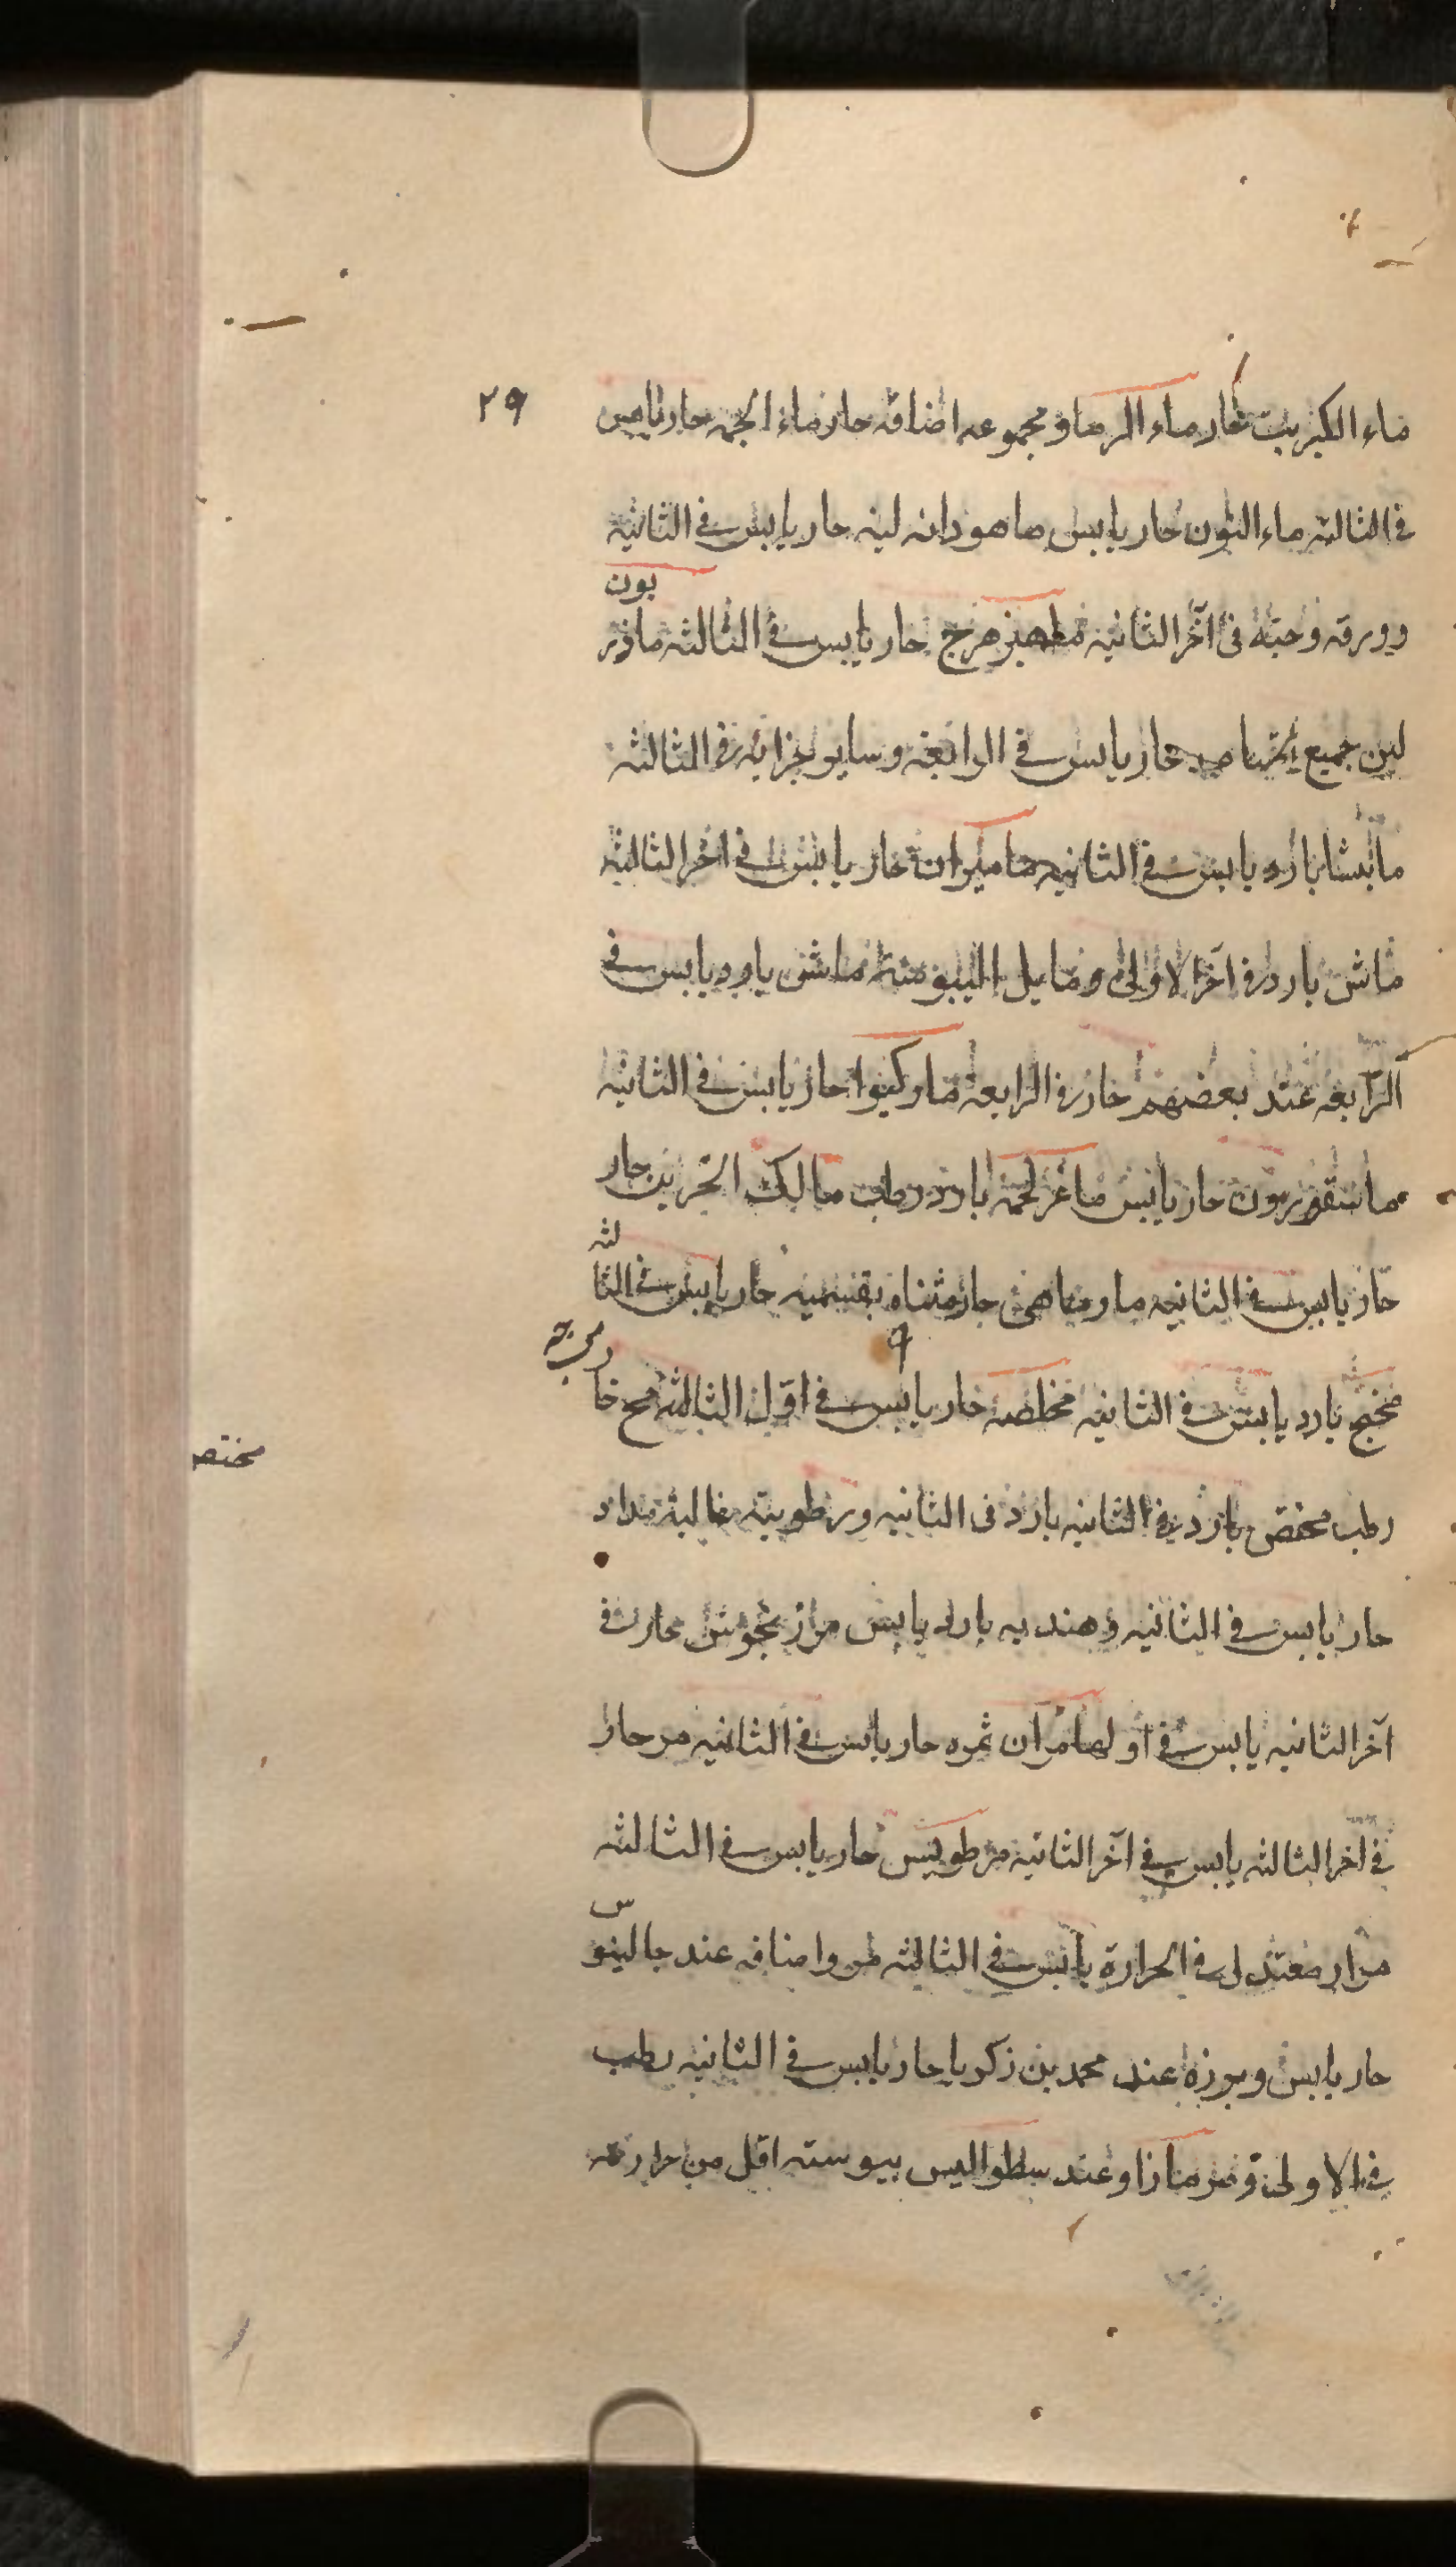 ٢٩
ماء الكبريت حار ماء الرماد ومجموعه اضافه حار ماء الجمه حار يابس
في الثالثه ماء النون حار يابس ماهودانه لينه حار يابس في الثانيه
وورقه وحبه في آخر الثانيه حار يابس في الثالثه ماذر
يون
لبن جميع حار يابس في الرابعه وساير اجزائه في الثالثه
مابشا بارد يابس في الثانيه ماميران حار يابس في اخر الثالثه
ماش بارد في آخر الاولى ومايل اليبوسته ماش بارد يابس في
الرابعه عند بعضهم حار في الرابعه ماركيوا حار يابس في الثانيه
حار يابس ماغر لحمه بارد رطب مالك الحزين حار
حار يابس في الثانيه حار مثناه بقسميه حار يابس في الثا
لثه
مخج بارد يابس في الثانيه مخلصه حار يابس في اول الثالثه مح خا
رطب مخض بارد في الثانيه بارد في الثانيه ورطوبته غالبة مداد
مختصر
حار يابس في الثانيه وهنديه بارد يابس مرزنجوش حار في
آخر الثانيه يابس في اولها مرآن ثمره حار يابس في الثانيه مر حار
في آخر الثالثه يابس في آخر الثانيه مرطويس حار يابس في الثالثه
مرار معتدل في الحرارة يابس في الثالثه مرو اصنافه عند جالينو
س
حار يابس وبرزه عند محمد بن زكريا حار يابس في الثانيه رطب
في الاولى ومرمازا وعند يبوسته اقل من حرارته